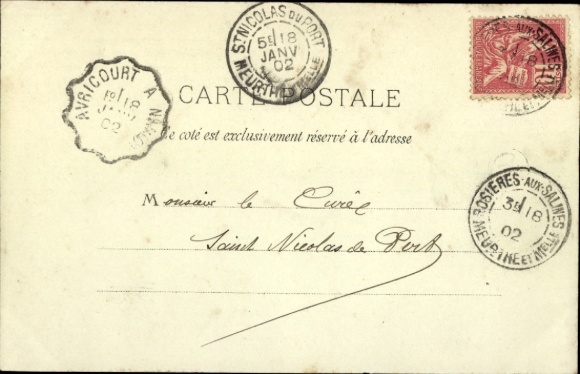 ST NICOLAS DU PORT
5E 18
JANV
02
MEURTHE ET MELLE
AVRICOURT A NANCY
18
JANV
02
ROSIERES-AUX-SALINES
10
CARTE POSTALE
Ce coté est exclusivement réservé à l'adresse
Monsieur le Curée
Saint Nicolas de Port
ROSIERES-AUX-SALINES
3E 18
02
MEURTHE ET MELLE